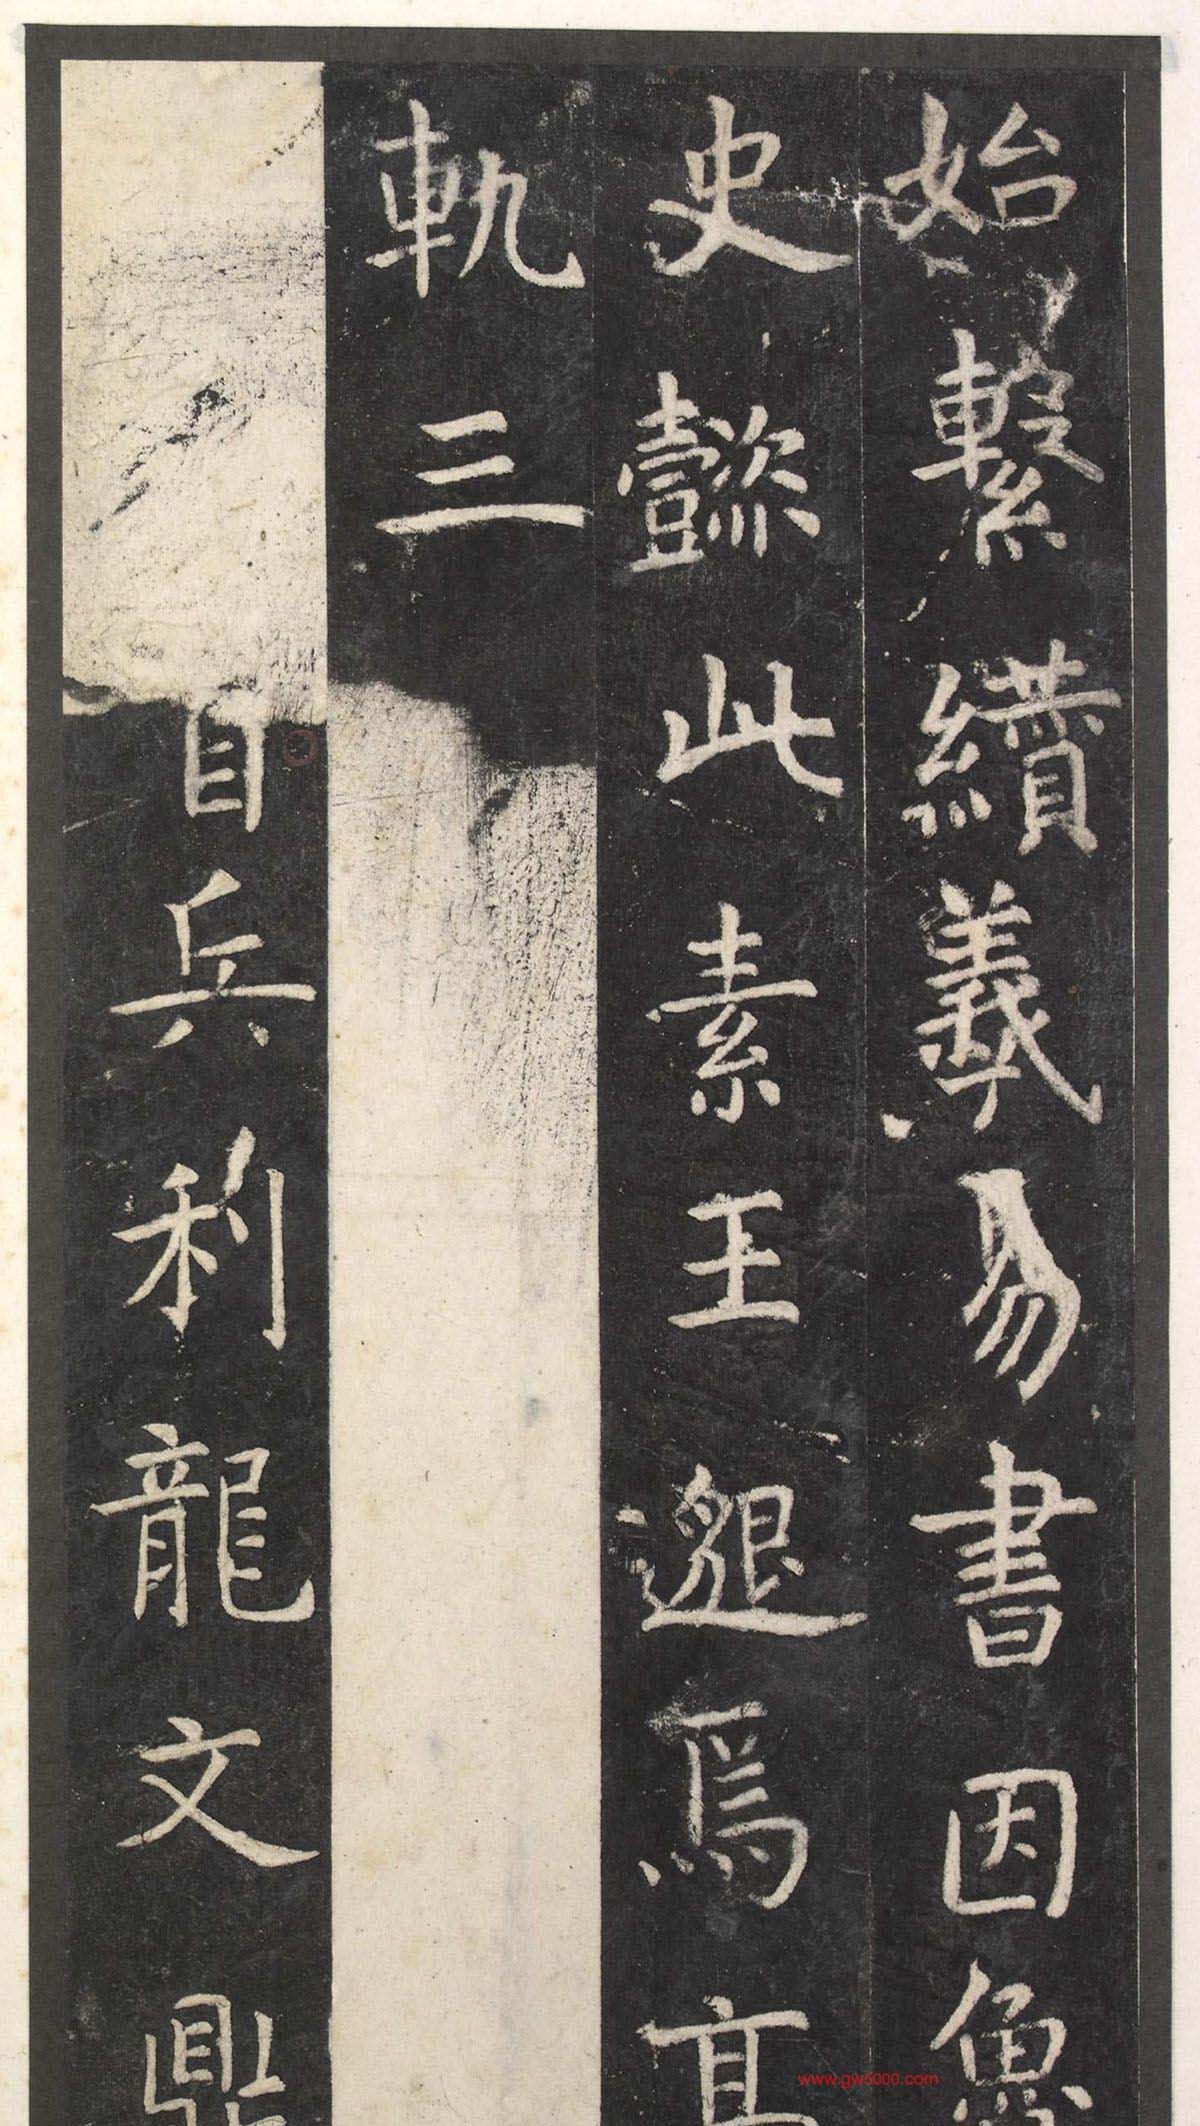 始繫纘羲易書因魯
史懿此素王邈焉高
軌三
自兵利龍文鼎
www.gw5000.com